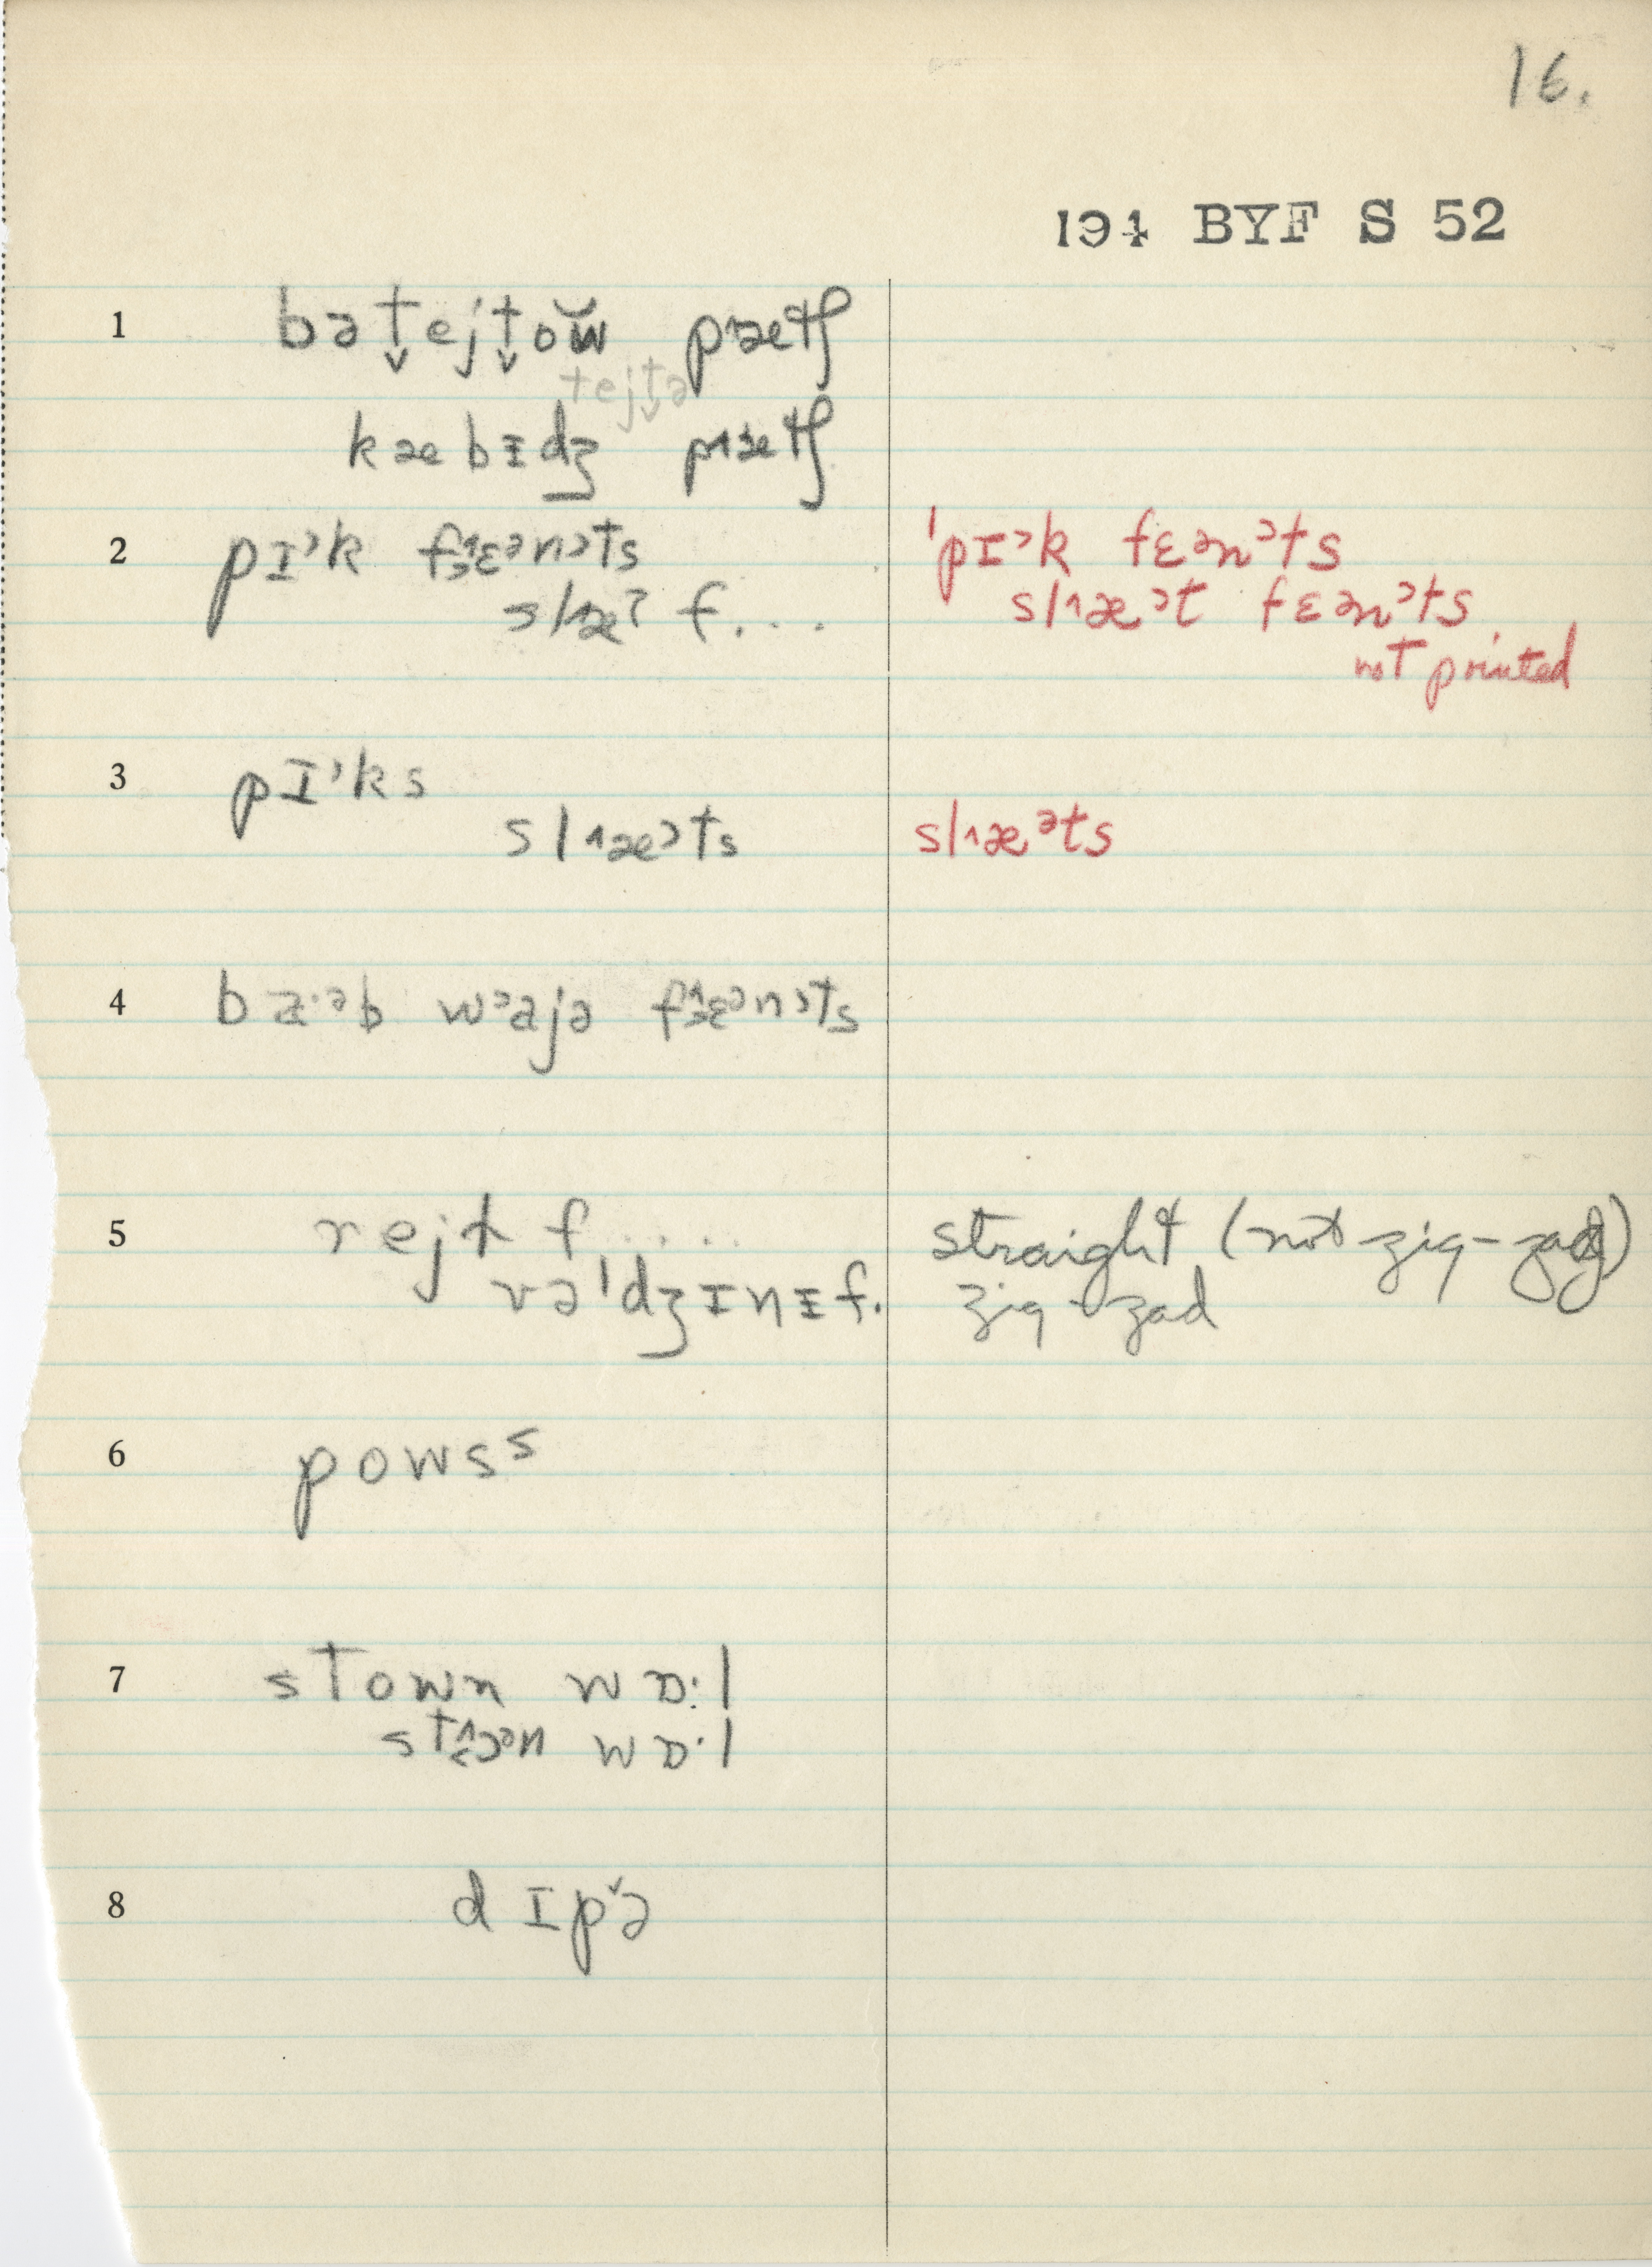 16.
194 BYF S 52
1 bət̬ejt̬ow̆ pɹætʃ
tejt̬ə
kæbɪdʒ pɹætʃ
2 pɪᵊk fɛᵊnᵊts 'pɪᵊk fɛᵊnᵊts
slæˀ f... slæᵊt fɛᵊnᵊts
not printed
3 pɪᵊks
slæᵊts slæᵊts
4 ba·ᵊb wᵊajə fɛᵊnᵊts
5 rejt f..... straight (not zig-zag)
və'dʒɪnɪ f. zig-zad
6 powsˢ
7 stown wɒ:l
stɔᵊn wɒ·l
8 dɪpə